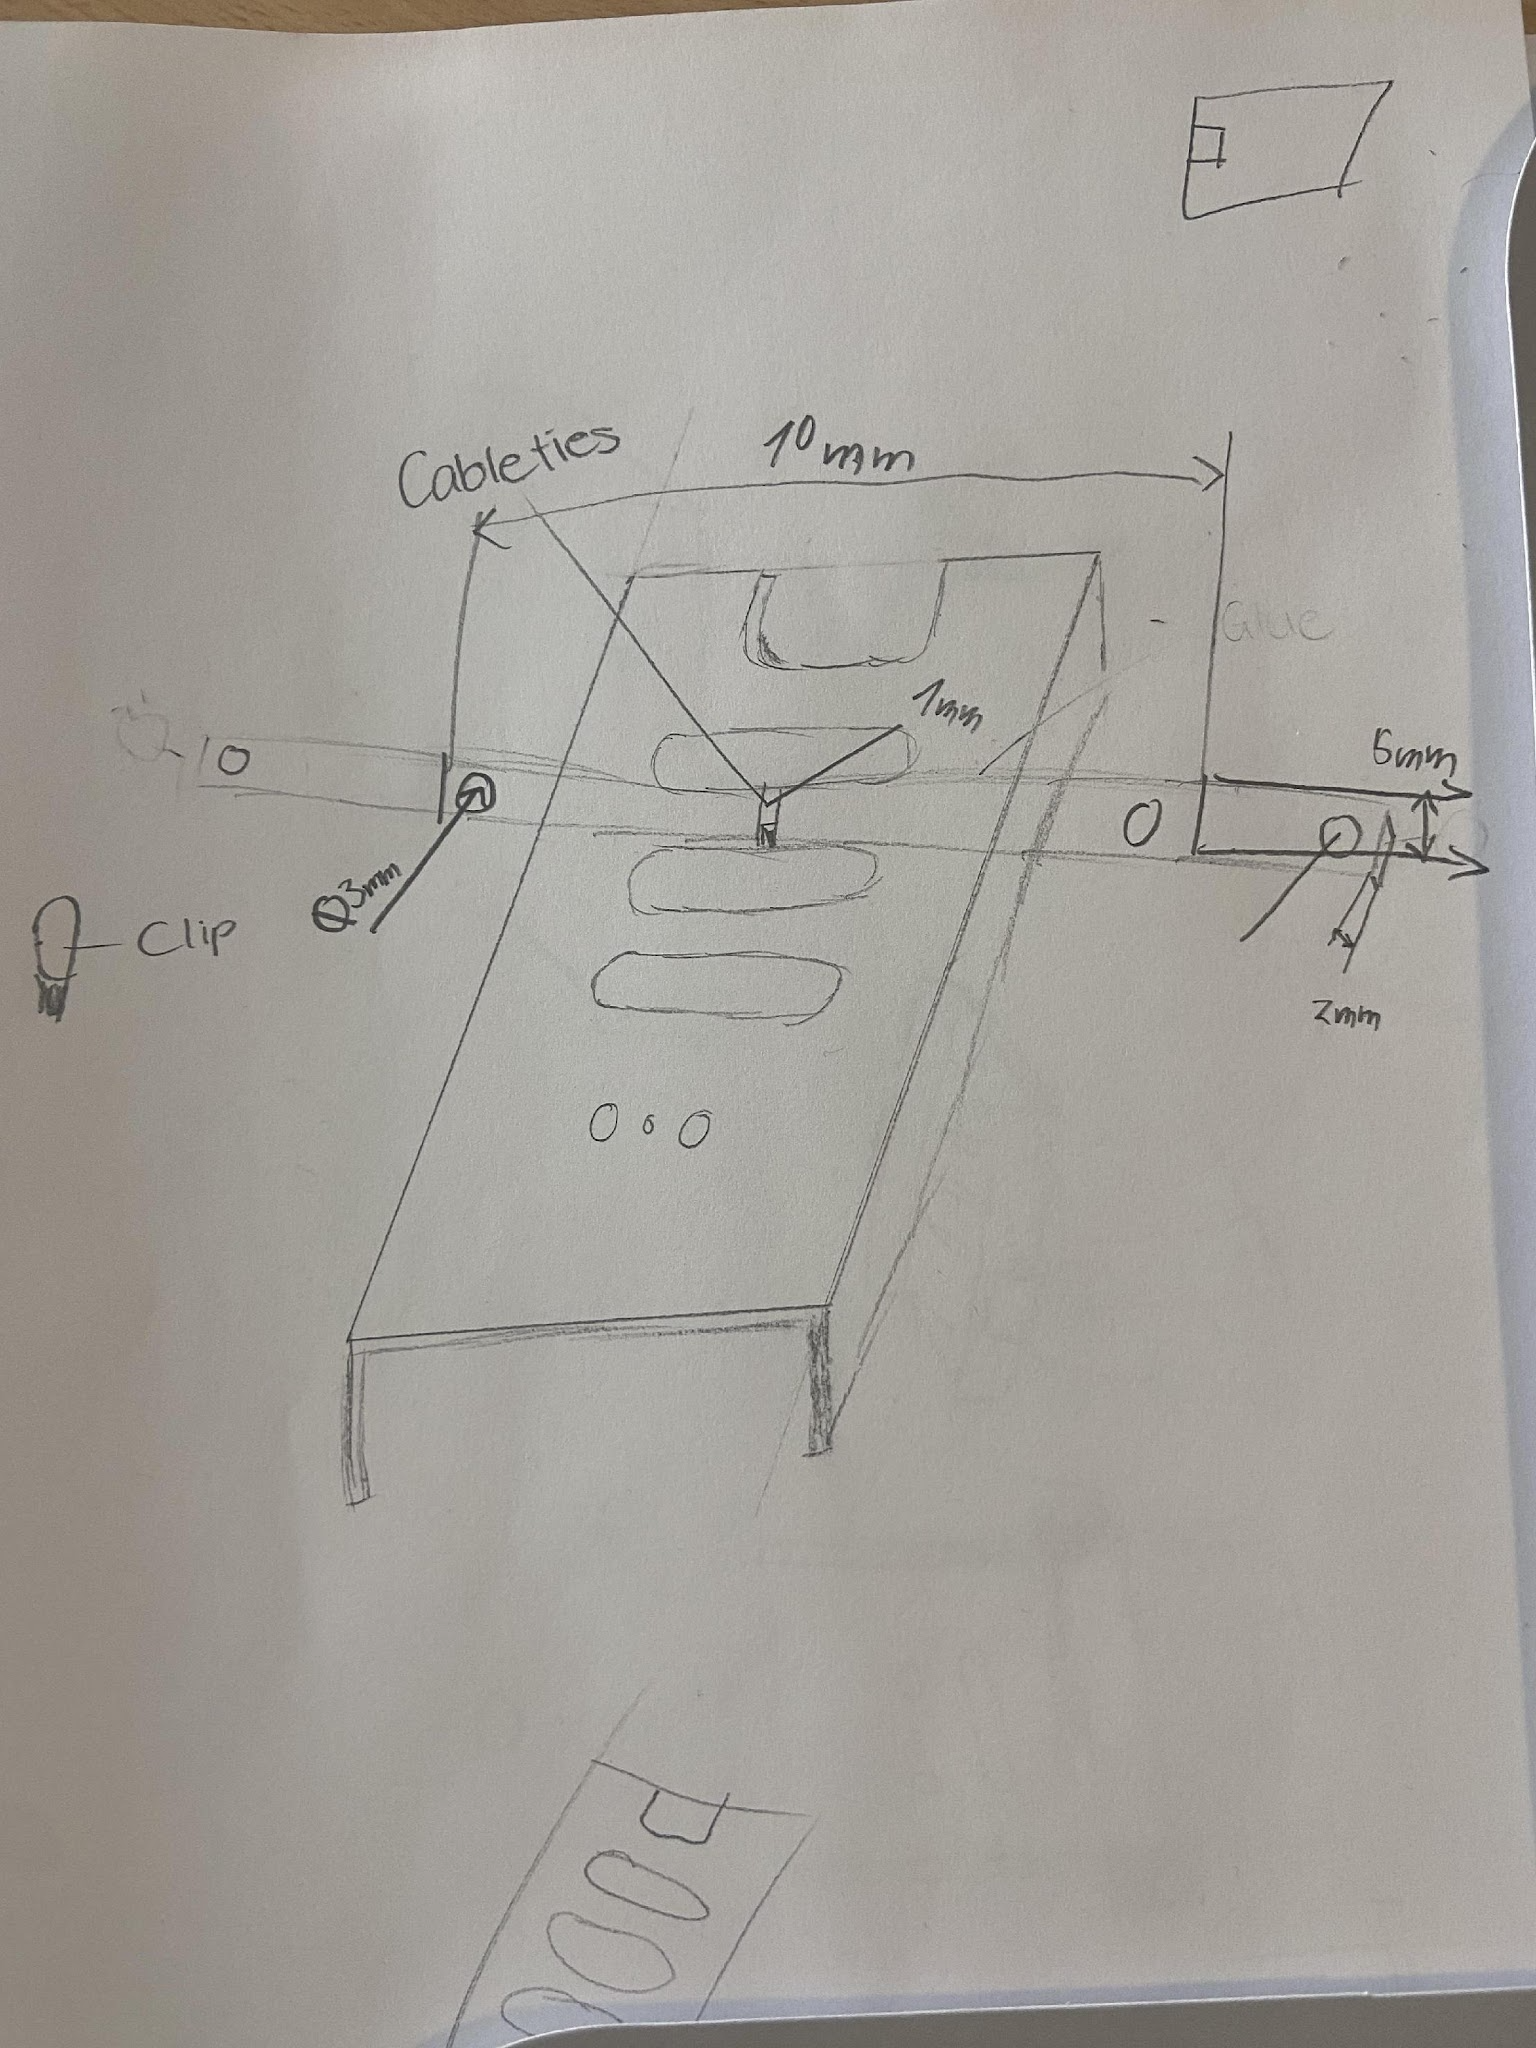 Cableties
10mm
Glue
1mm
6mm
Ø3mm
Clip
2mm